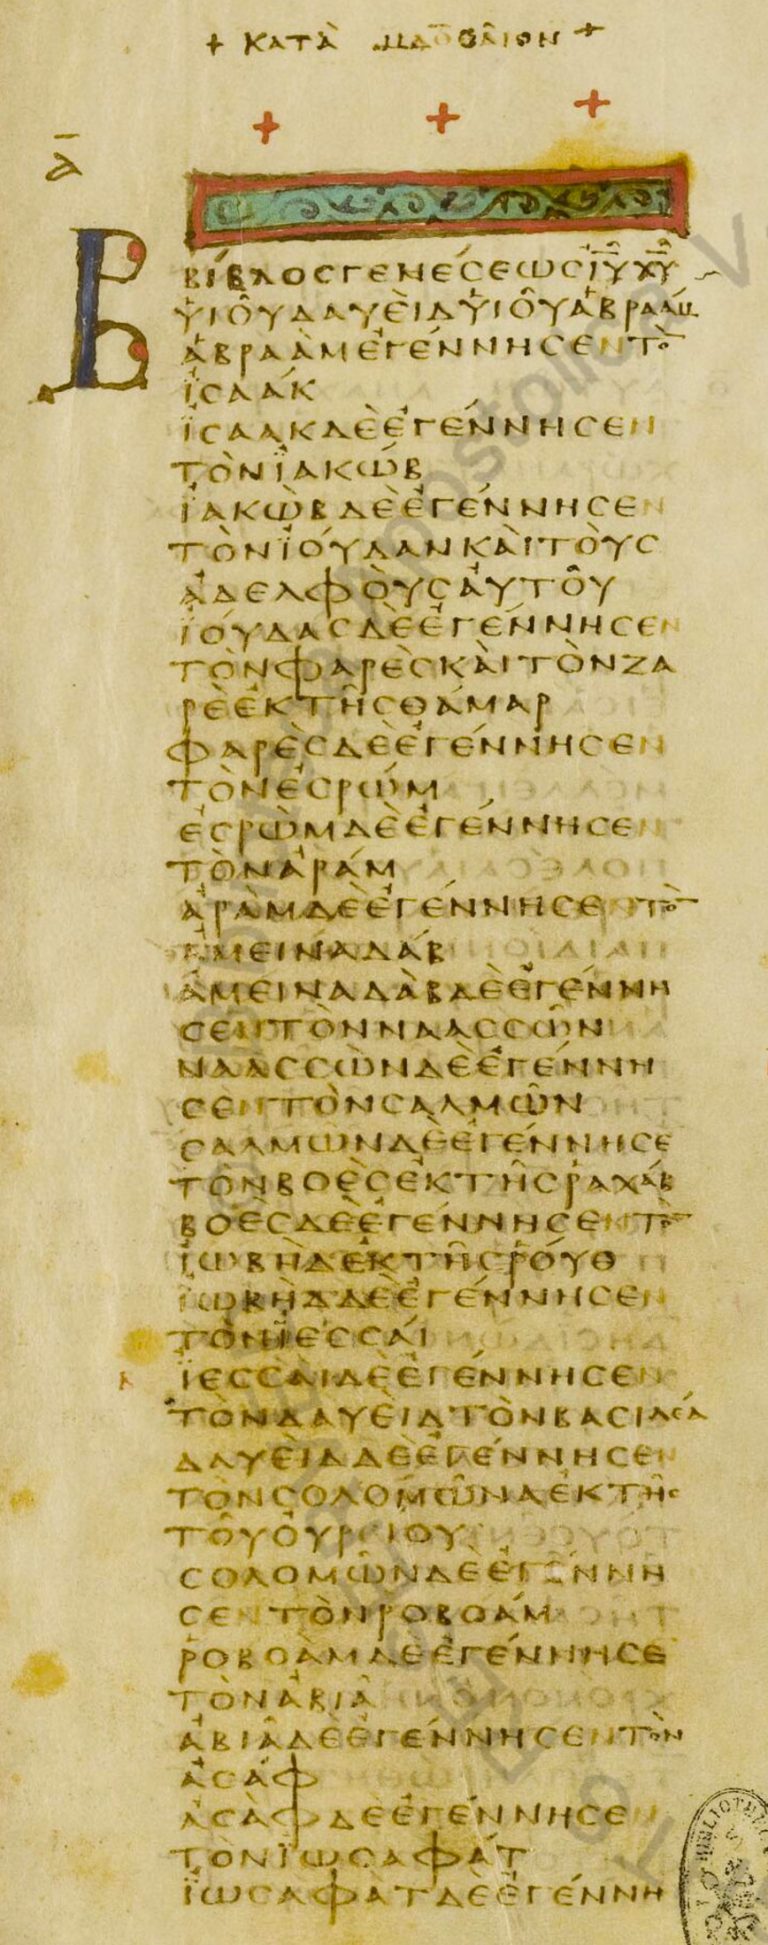 + ΚΑΤᾺ ΜΑΘΘΑΙΟΝ +
Α̅
Β
ΒΊΒΛΟΣ ΓΕΝΈΣΕΩΣ ΙΥ ΧΥ
ΥΙΟΥ ΔΑΥΕΙΔ ΥΙΟΥ ΑΒΡΑΑΜ
ΑΒΡΑΑΜ ΕΓΕΝΝΗΣΕΝ ΤΟ̅
ΪΣΑΑΚ
ΪΣΑΑΚ ΔΕ ΕΓΕΝΝΗΣΕΝ
ΤΟΝ ΪΑΚΩΒ
ΪΑΚΩΒ ΔΕ ΕΓΕΝΝΗΣΕΝ
ΤΟΝ ΪΟΥΔΑΝ ΚΑΙ ΤΟΥΣ
ΑΔΕΛΦΟΥΣ ΑΥΤΟΥ
ΪΟΥΔΑΣ ΔΕ ΕΓΕΝΝΗΣΕΝ
ΤΟΝ ΦΑΡΕΣ ΚΑΙ ΤΟΝ ΖΑ
ΡΕ ΕΚ ΤΗΣ ΘΑΜΑΡ
ΦΑΡΕΣ ΔΕ ΕΓΕΝΝΗΣΕΝ
ΤΟΝ ΕΣΡΩΜ
ΕΣΡΩΜ ΔΕ ΕΓΕΝΝΗΣΕΝ
ΤΟΝ ΑΡΑΜ
ΑΡΑΜ ΔΕ ΕΓΕΝΝΗΣΕΝ ΤΟ̅
ΑΜΕΙΝΑΔΑΒ
ΑΜΕΙΝΑΔΑΒ ΔΕ ΕΓΕΝΝΗ
ΣΕΝ ΤΟΝ ΝΑΑΣΣΩΝ
ΝΑΑΣΣΩΝ ΔΕ ΕΓΕΝΝΗ
ΣΕΝ ΤΟΝ ΣΑΛΜΩΝ
ΣΑΛΜΩΝ ΔΕ ΕΓΕΝΝΗΣΕ
ΤΟΝ ΒΟΕΣ ΕΚ ΤΗΣ ΡΑΧΑΒ
ΒΟΕΣ ΔΕ ΕΓΕΝΝΗΣΕΝ ΤΟ̅
ΪΩΒΗΔ ΕΚ ΤΗΣ ΡΟΥΘ
ΪΩΒΗΔ ΔΕ ΕΓΕΝΝΗΣΕΝ
ΤΟΝ ΪΕΣΣΑΙ
ΪΕΣΣΑΙ ΔΕ ΕΓΕΝΝΗΣΕΝ
ΤΟΝ ΔΑΥΕΙΔ ΤΟΝ ΒΑΣΙΛΕΑ
ΔΑΥΕΙΔ ΔΕ ΕΓΕΝΝΗΣΕΝ
ΤΟΝ ΣΟΛΟΜΩΝΑ ΕΚ ΤΗΣ
ΤΟΥ ΟΥΡΕΙΟΥ
ΣΟΛΟΜΩΝ ΔΕ ΕΓΕΝΝΗ
ΣΕΝ ΤΟΝ ΡΟΒΟΑΜ
ΡΟΒΟΑΜ ΔΕ ΕΓΕΝΝΗΣΕ
ΤΟΝ ΑΒΙΑ
ΑΒΙΑ ΔΕ ΕΓΕΝΝΗΣΕΝ ΤΟΝ
ΑΣΑΦ
ΑΣΑΦ ΔΕ ΕΓΕΝΝΗΣΕΝ
ΤΟΝ ΪΩΣΑΦΑΤ
ΪΩΣΑΦΑΤ ΔΕ ΕΓΕΝΝΗ